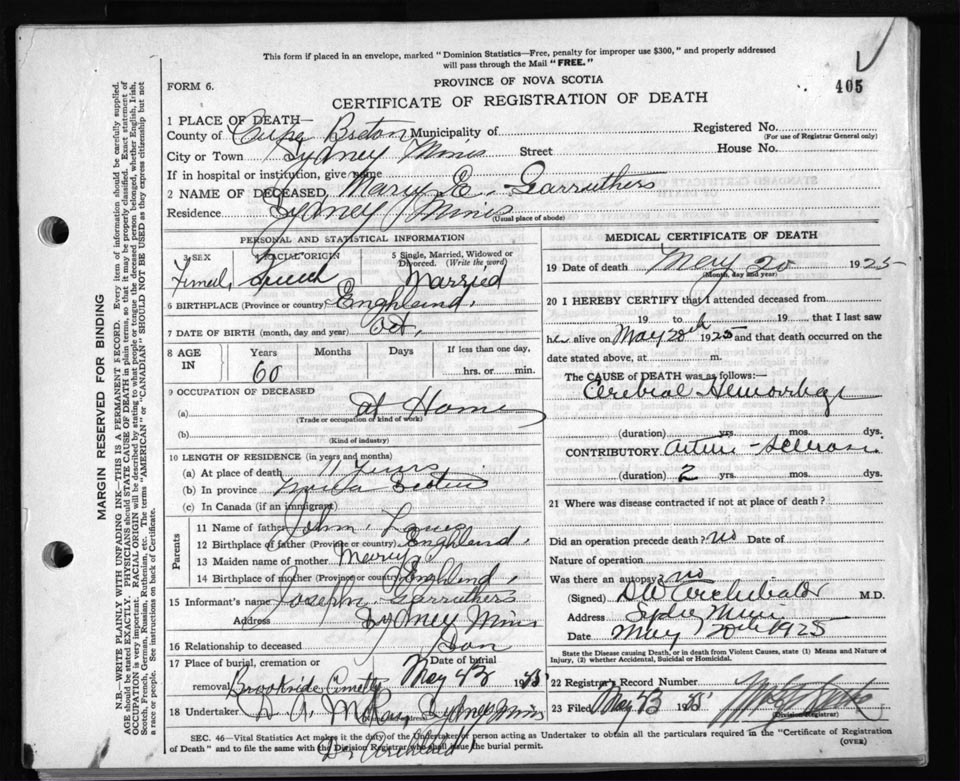 This form if placed in an envelope, marked "Dominion Statistics—Free, penalty for improper use $300," and properly addressed
will pass through the Mail "FREE."
405
FORM 6.
PROVINCE OF NOVA SCOTIA
CERTIFICATE OF REGISTRATION OF DEATH
MARGIN RESERVED FOR BINDING
N.B.—WRITE PLAINLY WITH UNFADING INK—THIS IS A PERMANENT RECORD. Every item of information should be carefully supplied.
AGE should be stated EXACTLY. PHYSICIANS should STATE CAUSE OF DEATH in plain terms, so that it may be properly classified. Exact statement of
OCCUPATION is very important. RACIAL ORIGIN will be described by stating to what people or tongue the deceased person belonged, whether English, Irish,
Scotch, French, German, Russian, Ruthenian, etc. The terms "AMERICAN" or "CANADIAN" SHOULD NOT BE USED as they express citizenship but not
a race or people. See instructions on back of Certificate.
1 PLACE OF DEATH—
County of Cape Breton Municipality of Registered No.
(For use of Registrar General only)
City or Town Sydney Mines Street House No.
If in hospital or institution, give name
2 NAME OF DECEASED Mary E. Garruthers
Residence Sydney Mines
(Usual place of abode)
PERSONAL AND STATISTICAL INFORMATION
3 SEX 4 RACIAL ORIGIN 5 Single, Married, Widowed or
Divorced. (Write the word)
Married
6 BIRTHPLACE (Province or country) Enghland,
7 DATE OF BIRTH (month, day and year) Oct,
8 AGE IN Years Months Days If less than one day,
60 hrs. or min.
9 OCCUPATION OF DECEASED
(a) At Home
(Trade or occupation or kind of work)
(b)
(Kind of industry)
10 LENGTH OF RESIDENCE (in years and months)
(a) At place of death 11 Years
(b) In province Nova Scotia
(c) In Canada (if an immigrant)
Parents
11 Name of father John
12 Birthplace of father (Province or country) Enghland,
13 Maiden name of mother Mary
14 Birthplace of mother (Province or country) Enghlend,
15 Informant's name Joseph Garruthers
Address Sydney Mines
16 Relationship to deceased Son
17 Place of burial, cremation or Date of burial
removal Brookside Cemetry May 23 1925
18 Undertaker D A McKay, Sydney Mines
Dr Archibald
MEDICAL CERTIFICATE OF DEATH
19 Date of death May 20 1925
(Month, day and year)
20 I HEREBY CERTIFY that I attended deceased from
19 to 19 that I last saw
her alive on May 20th 1925 and that death occurred on the
date stated above, at m.
The CAUSE of DEATH was as follows:—
Cerebral Hemorrhage
(duration) yrs. mos. dys.
CONTRIBUTORY
(duration) 2 yrs. mos. dys.
21 Where was disease contracted if not at place of death?
Did an operation precede death? no Date of
Nature of operation
Was there an autopsy? no
(Signed) DW Archibald M.D.
Address Sydney Mines
Date May 20th 1925
State the Disease causing Death, or in death from Violent Causes, state (1) Means and Nature of
Injury, (2) whether Accidental, Suicidal or Homicidal.
22 Registrar's Record Number
23 Filed May 23 1925
(Division Registrar)
SEC. 46—Vital Statistics Act makes it the duty of the Undertaker or person acting as Undertaker to obtain all the particulars required in the "Certificate of Registration
of Death" and to file the same with the Division Registrar who shall issue the burial permit.
(OVER)